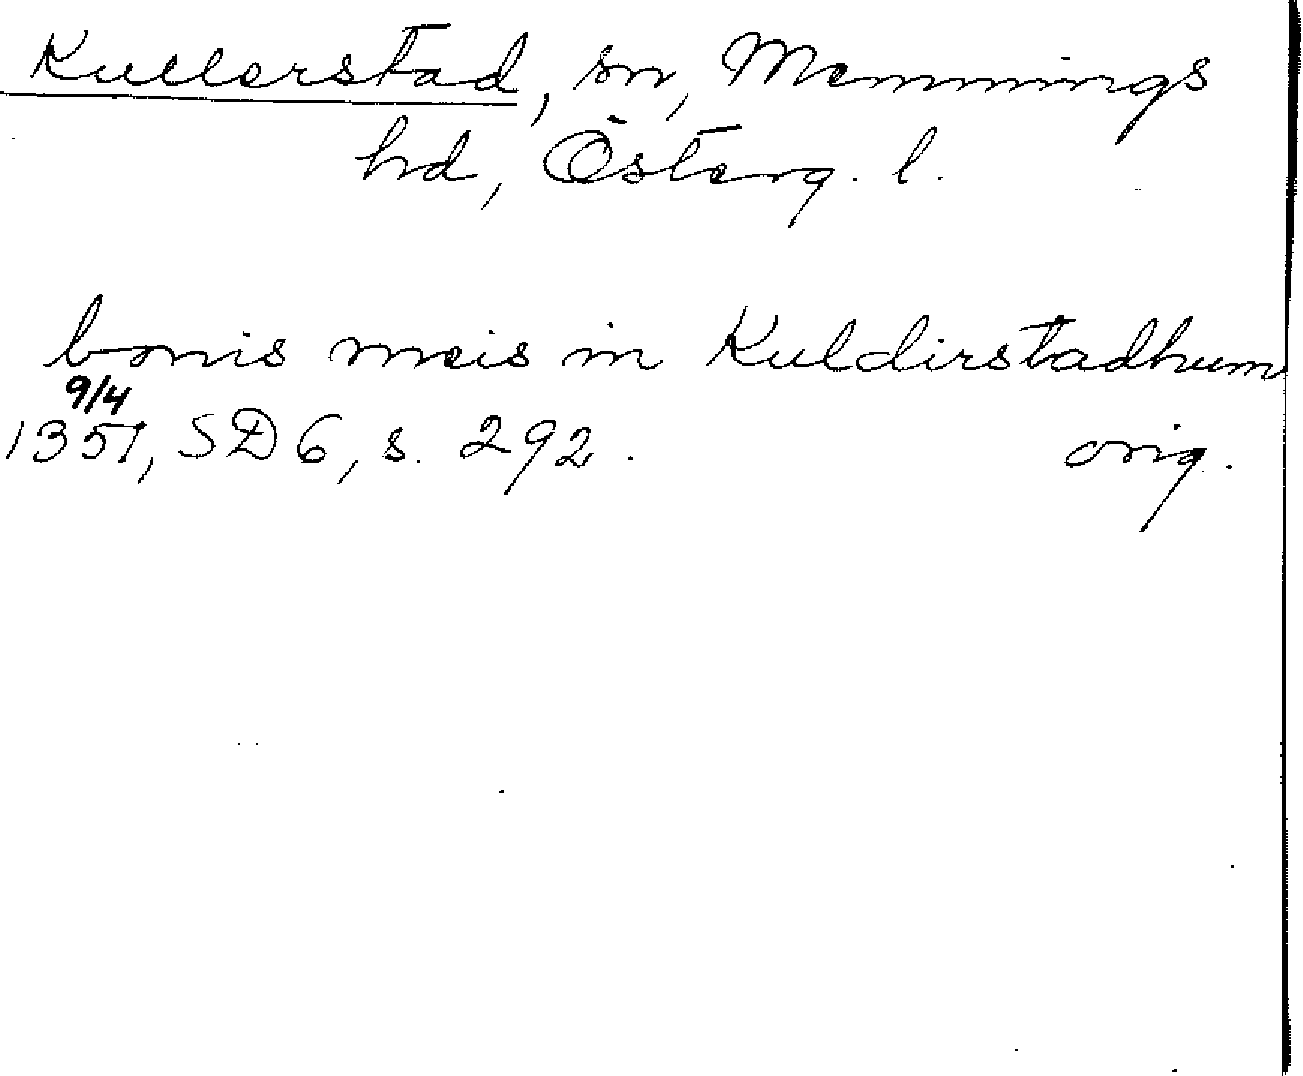 Kullerstad, sn, Memmings
hd, Österg. l.
bonis meis in Kuldirstadhum
9/4
1351, SD 6, s. 292. orig.